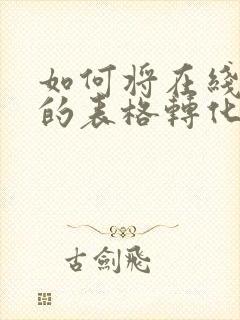 如何將在綫
的表格轉化
古劍飛